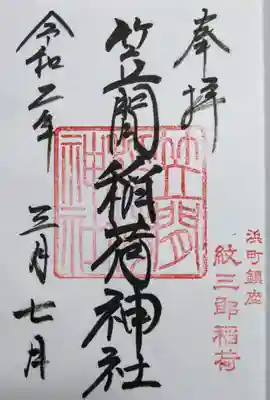 奉拝
浜町鎮座
紋三郎稲荷
笠間稲荷神社
笠間
神社
令和二年三月七日